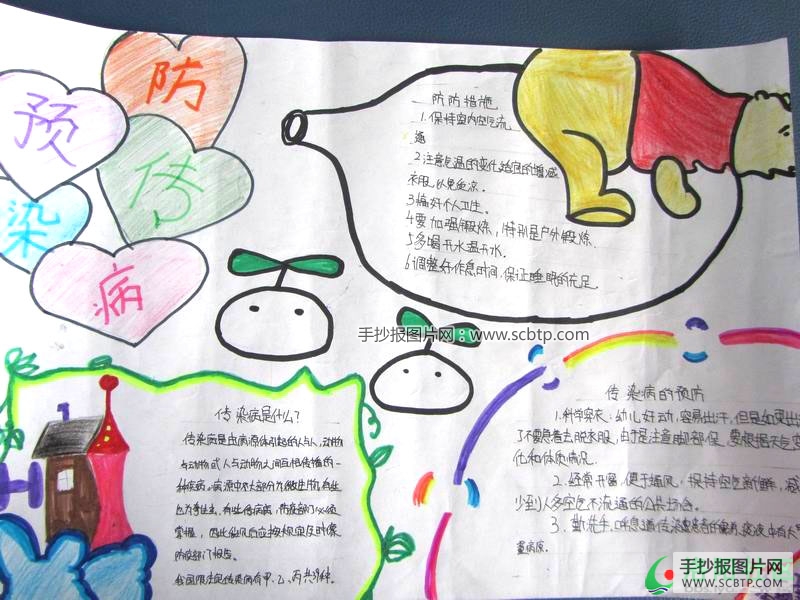 预
防
传
染
病
防防措施
1.保持室内空气流
通
2.注意气温的变化,适宜的增减
衣服,以免着凉.
3.搞好个人卫生.
4要加强锻炼,特别是户外锻炼.
5多喝开水温开水.
6调整好作息时间,保证睡眠的充足.
手抄报图片网:www.scbtp.com
传染病是什么?
传染病是由病原体引起的人与人,动物
与动物或人与动物之间互相传播的一
种疾病,病原中大部分为微生物,
防疫部门报告.
我国
传染病有甲、乙、丙共39种.
传染病的预防
1.科学穿衣:幼儿好动,容易出汗,但是如果出
了不要急着去脱衣服,由于是注意脚部保,要根据天气变
化和体质情况.
2.经常开窗,便于通风,保持空气清新,减
少到人多空气不流通的公共场合.
3.勤洗手.呼吸道传染患者的鼻涕,痰液中有大
量病原.
手抄报图片网
WWW.SCBTP.COM